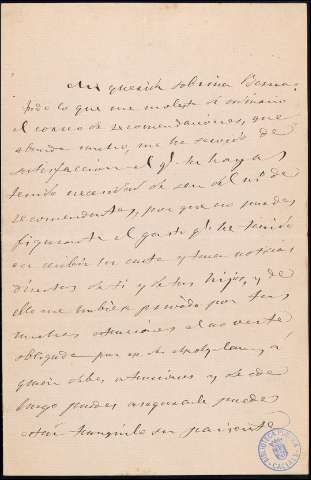 Mi querida sobrina
todo lo que me molesta de ordinario
el correo de recomendaciones, que
me ha servido de
satisfaccion el ql. te hayas
tenido necesidad de ser del no. de
recomendantes, por que no puedes
figurarte el gusto ql. he tenido
en recibir tu carta y tener noticias
directas de ti y de tus hijos, y de
ello me hubiera privado por tus
muchas atenciones el no verte
obligada por
quien debes atenciones y desde
luego puedes asegurarle puede
estar tranquilo su pariente
BIBLIOTECA PUBLICA
CACERES